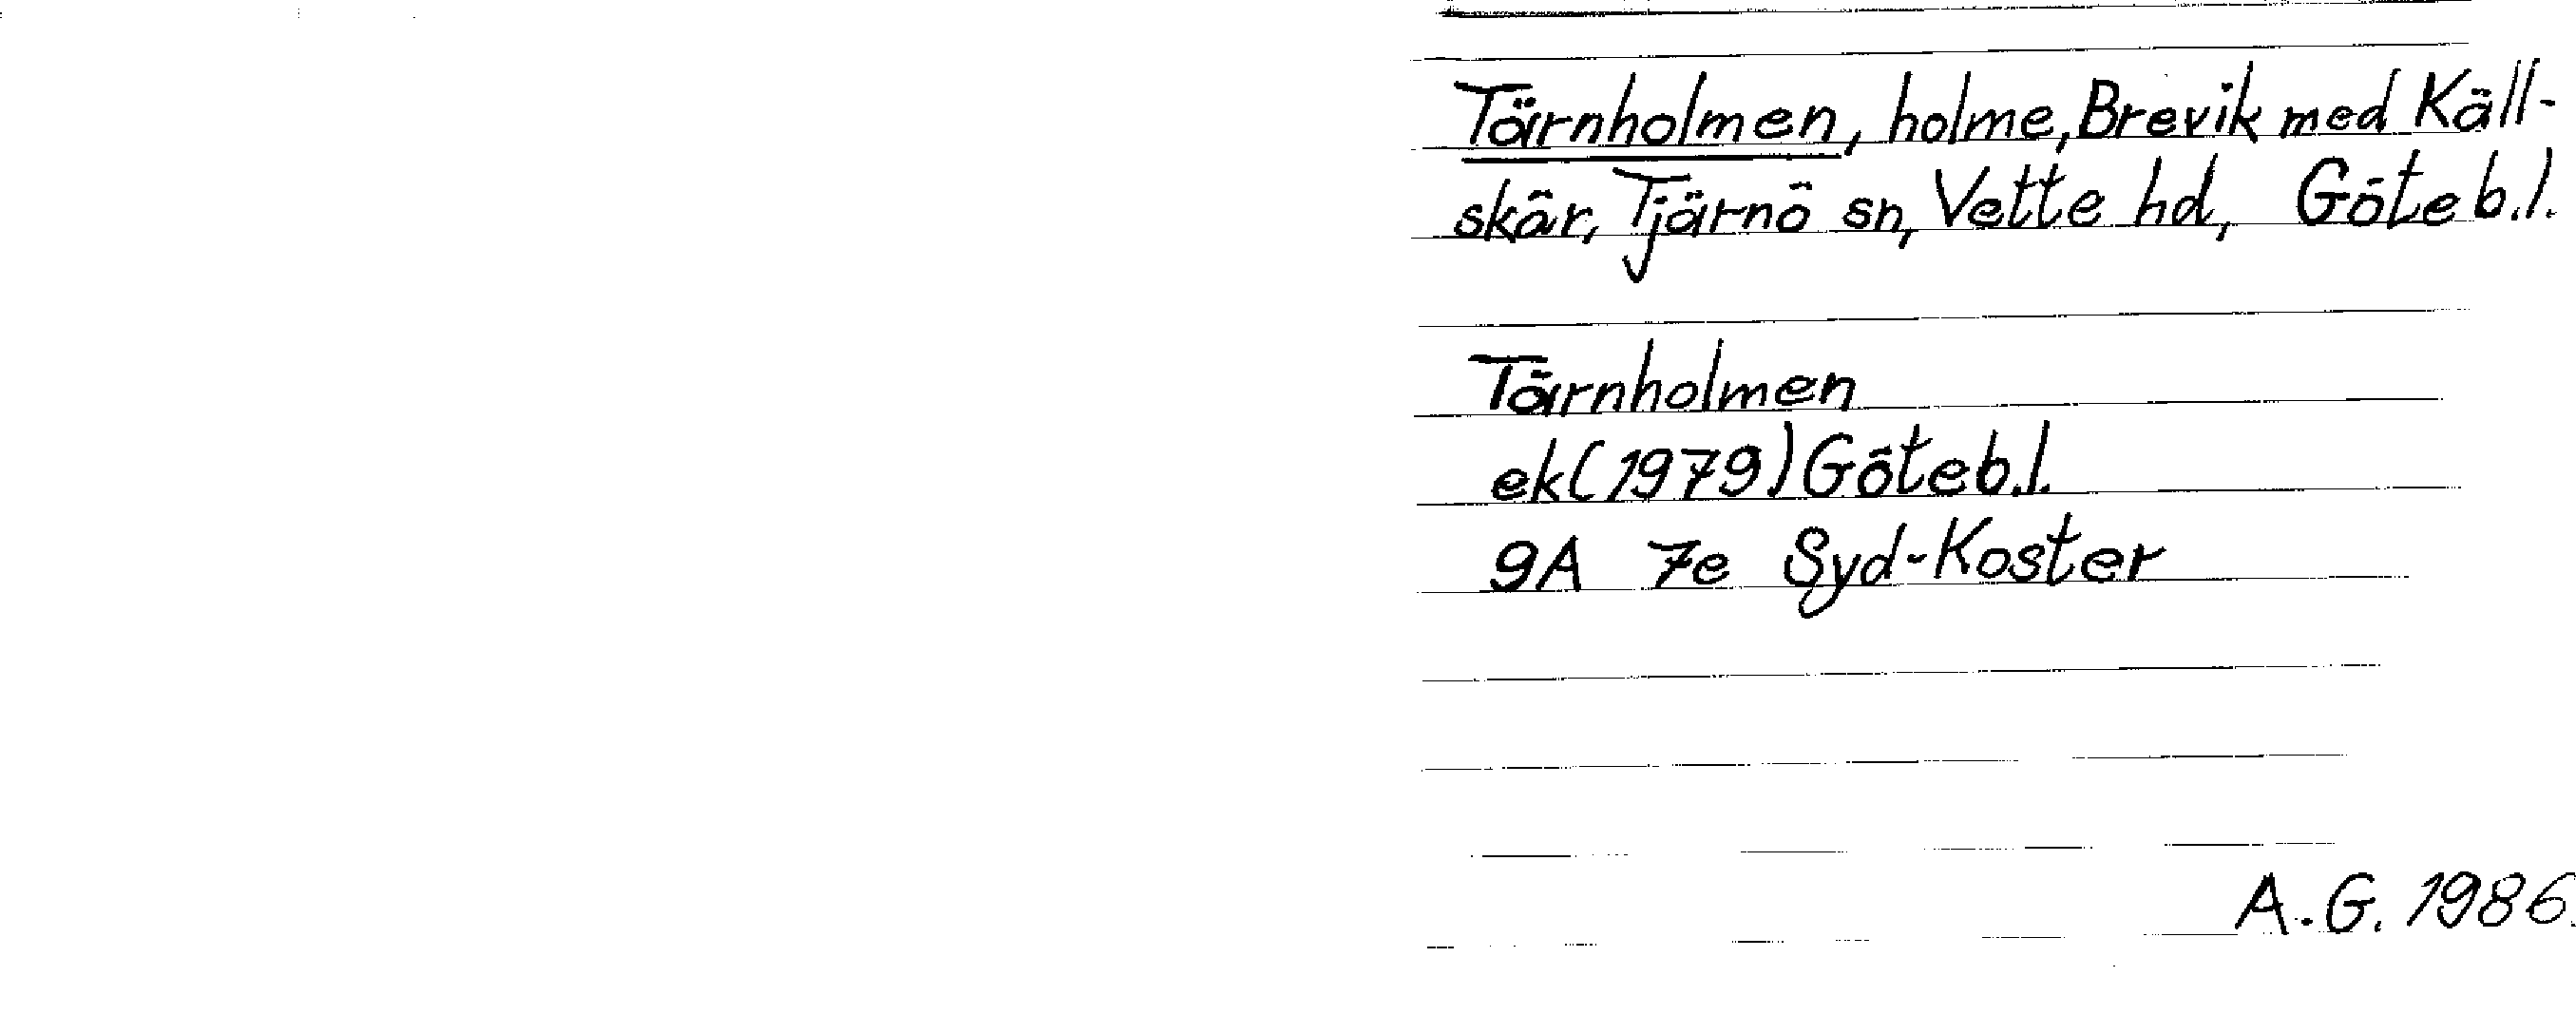 Tärnholmen, holme, Brevik med Käll-
skär, Tjärnö sn, Vette hd, Göteb.l.
Tärnholmen
ek (1979) Göteb.l.
9A 7e Syd-Koster
A.G. 1986.